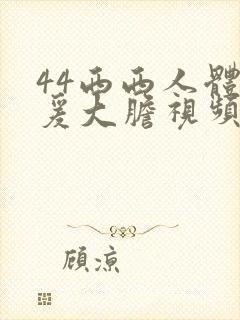 44西西人體
爰大膽視頻
顧涼